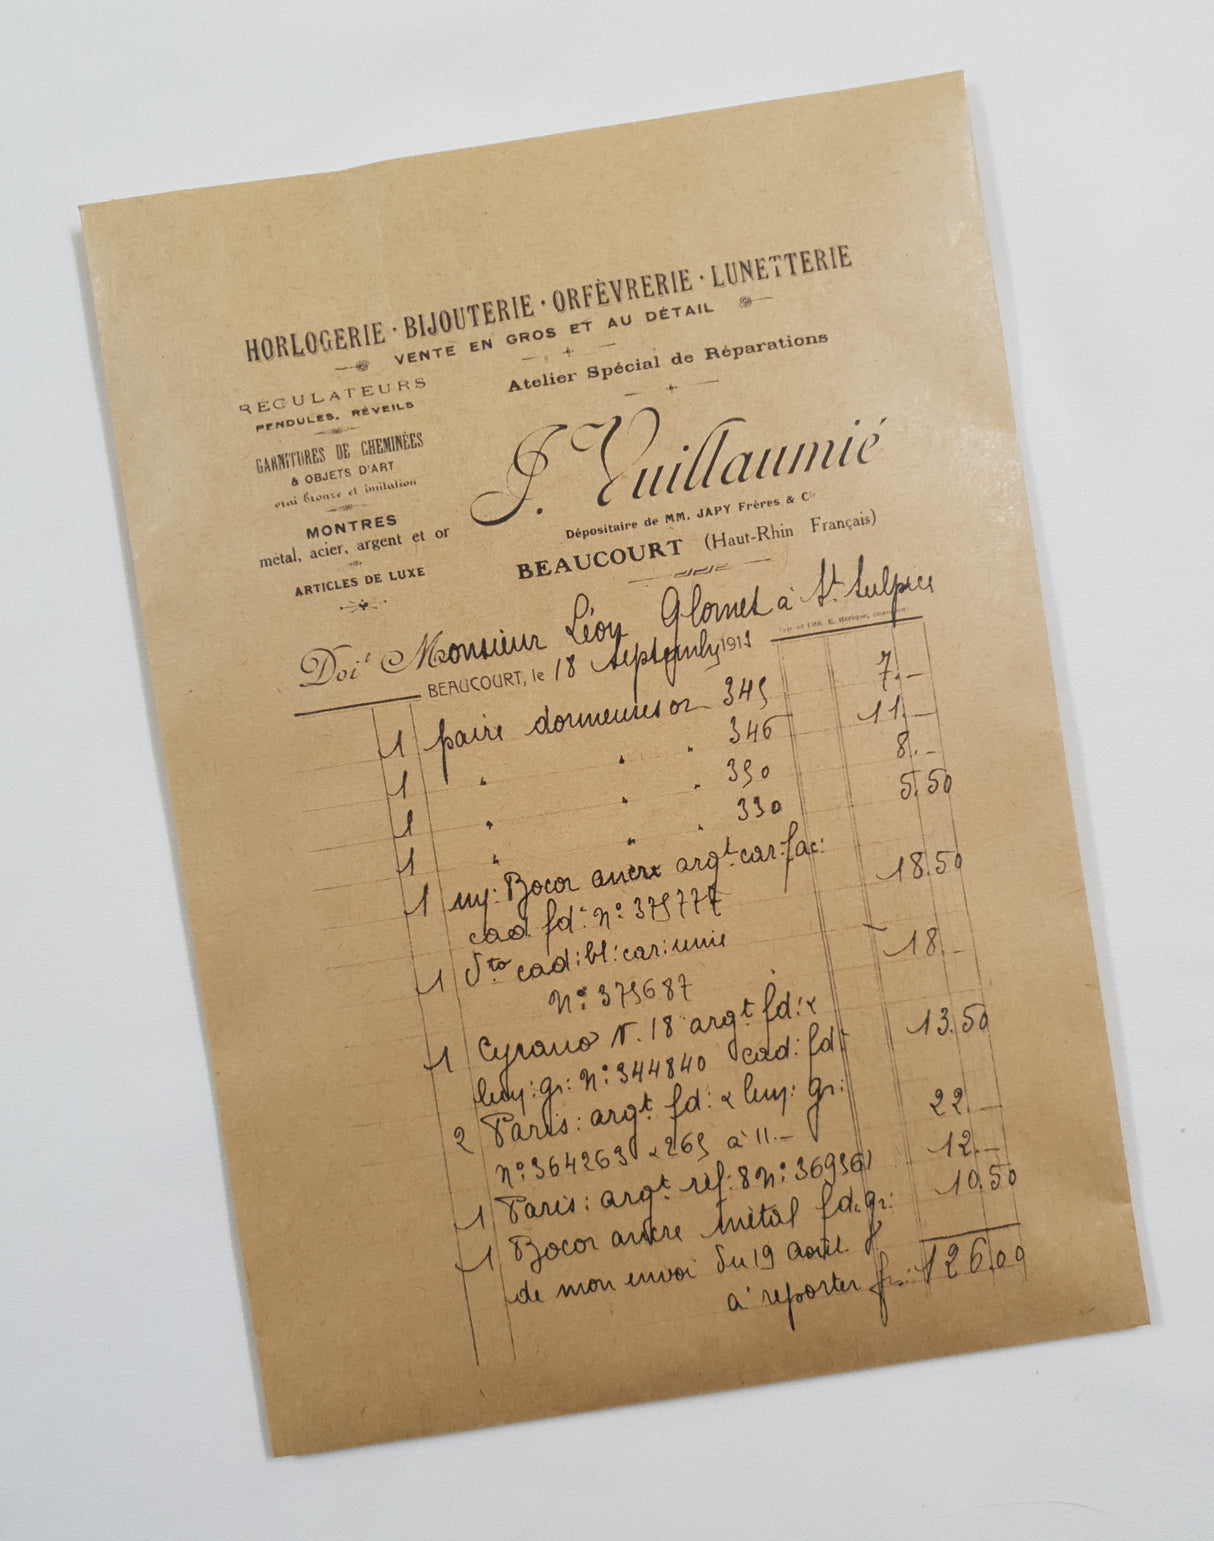 HORLOGERIE · BIJOUTERIE · ORFÈVRERIE · LUNETTERIE
VENTE EN GROS ET AU DÉTAIL
RÉGULATEURS
PENDULES, RÉVEILS
GARNITURES DE CHEMINÉES
& OBJETS D'ART
vrai bronze et imitation
MONTRES
métal, acier, argent et or
ARTICLES DE LUXE
Atelier Spécial de Réparations
J. Vuillaumié
Dépositaire de MM. JAPY Frères & Cie
BEAUCOURT (Haut-Rhin Français)
Doit Monsieur Léon à St. Sulpice
BEAUCOURT, le 18 septembre 1911
1 paire dormeuses or 345 7.—
1 " " " 346 11.—
1 " " " 350 8.—
1 " " " 330 5.50
1 Bocor ancre argt. car: fac:
cad. fd: No: 375777 18.50
1 dto cad: bl: car: unie
No: 375687 18.—
1 Cyrano N. 18 argt. fd: &
gr: No: 344840 cad: fd: 13.50
2 Paris: argt. fd: & gr:
No: 364263 & 265 à 11.— 22.—
1 Paris: argt. réf: 8 No: 369361 12.—
1 Bocor ancre métal fd: gr: 10.50
de mon envoi du 19 août
à reporter fr: 126.00